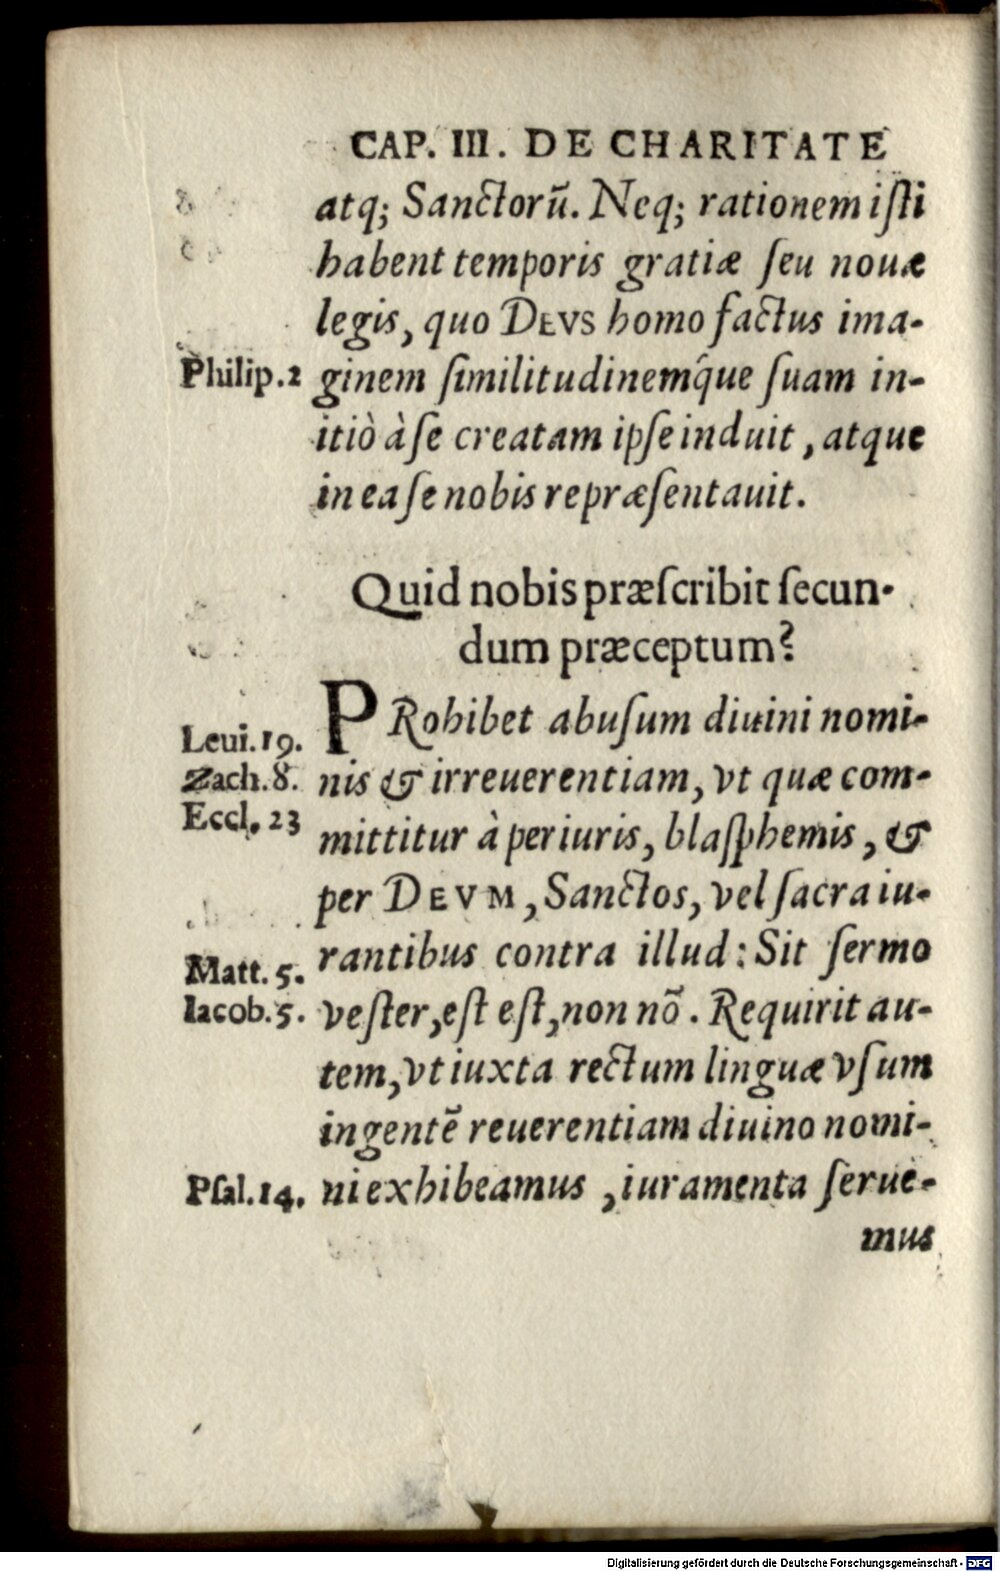 CAP. III. DE CHARITATE
atq; Sanctorũ. Neq; rationem iſti
habent temporis gratiæ ſeu nouæ
legis, quo DEVS homo factus ima-
Philip. 2
ginem ſimilitudinemq́ue ſuam in-
itiò à ſe creatam ipſe induit, atque
in ea ſe nobis repræſentauit.
Quid nobis præſcribit ſecun-
dum præceptum?
PRohibet abuſum diuini nomi-
Leui. 19.
Zach. 8.
Eccl. 23
nis & irreuerentiam, vt quæ com-
mittitur à periuris, blaſphemis, &
per DEVM, Sanctos, vel ſacra iu-
Matt. 5.
rantibus contra illud: Sit ſermo
Iacob. 5.
veſter, eſt eſt, non nõ. Requirit au-
tem, vt iuxta rectum linguæ vſum
ingentẽ reuerentiam diuino nomi-
Pſal. 14.
ni exhibeamus, iuramenta ſerue-
mus
Digitalisierung gefördert durch die Deutsche Forschungsgemeinschaft - DFG